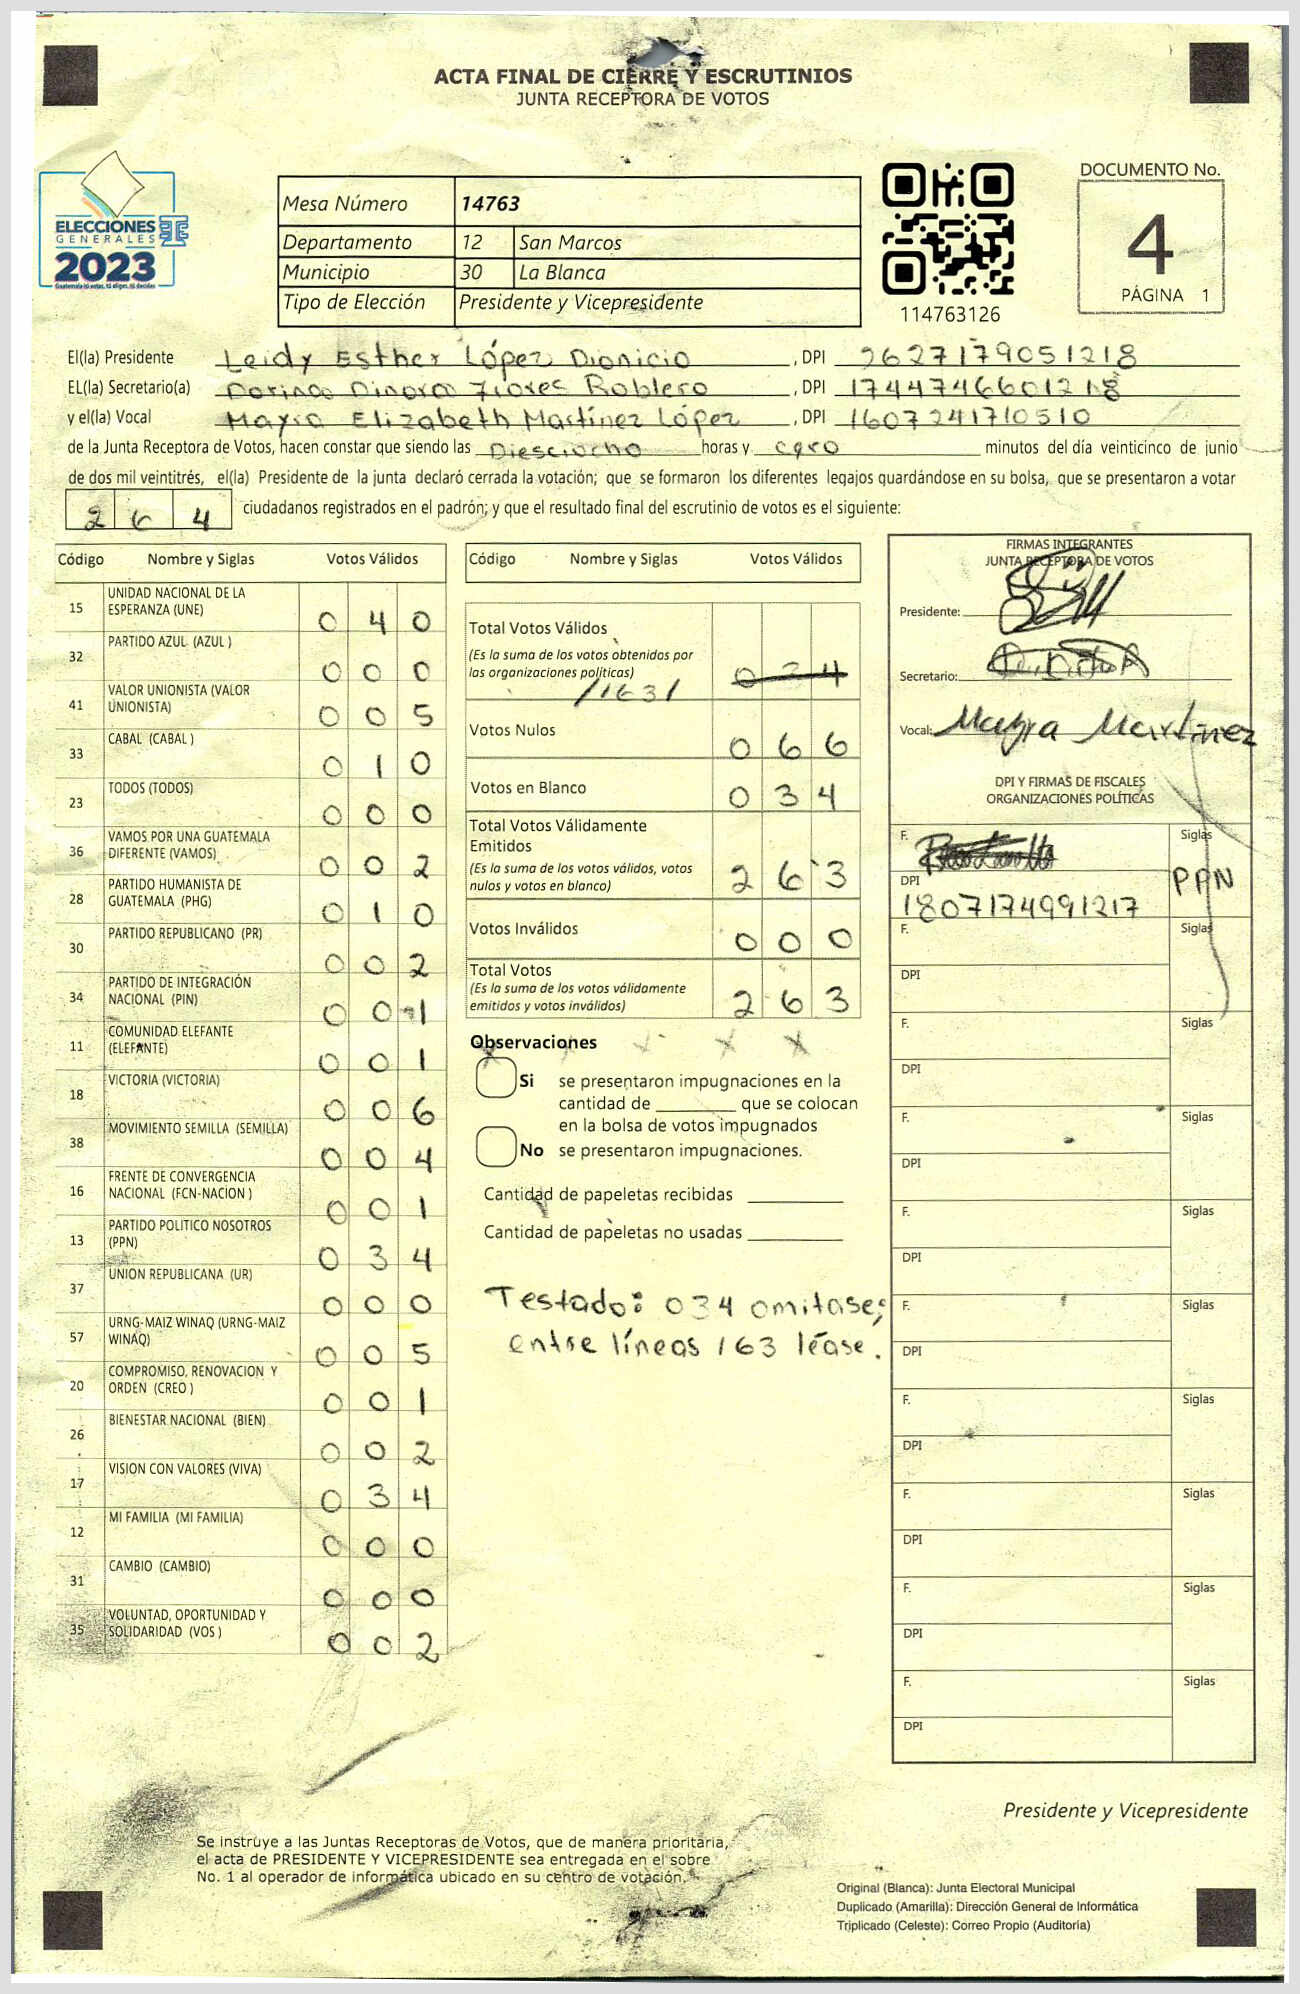 ACTA FINAL DE CIERRE Y ESCRUTINIOS
JUNTA RECEPTORA DE VOTOS
ELECCIONES
GENERALES
2023
Guatemala tú votas, tú eliges, tú decides
Mesa Número 14763
Departamento 12 San Marcos
Municipio 30 La Blanca
Tipo de Elección Presidente y Vicepresidente
114763126
DOCUMENTO No.
4
PÁGINA 1
El(la) Presidente Leidy Esther López Dionicio , DPI 2627179051218
EL(la) Secretario(a) Dorinda Dinora Flores Roblero , DPI 1744746601218
y el(la) Vocal Mayra Elizabeth Martínez López , DPI 1607241710510
de la Junta Receptora de Votos, hacen constar que siendo las Diesciocho horas y cero minutos del día veinticinco de junio
de dos mil veintitrés, el(la) Presidente de la junta declaró cerrada la votación; que se formaron los diferentes legajos guardándose en su bolsa, que se presentaron a votar
264 ciudadanos registrados en el padrón; y que el resultado final del escrutinio de votos es el siguiente:
Código Nombre y Siglas Votos Válidos
15 UNIDAD NACIONAL DE LA ESPERANZA (UNE) 0 4 0
32 PARTIDO AZUL (AZUL ) 0 0 0
41 VALOR UNIONISTA (VALOR UNIONISTA) 0 0 5
33 CABAL (CABAL ) 0 1 0
23 TODOS (TODOS) 0 0 0
36 VAMOS POR UNA GUATEMALA DIFERENTE (VAMOS) 0 0 2
28 PARTIDO HUMANISTA DE GUATEMALA (PHG) 0 1 0
30 PARTIDO REPUBLICANO (PR) 0 0 2
34 PARTIDO DE INTEGRACIÓN NACIONAL (PIN) 0 0 1
11 COMUNIDAD ELEFANTE (ELEFANTE) 0 0 1
18 VICTORIA (VICTORIA) 0 0 6
38 MOVIMIENTO SEMILLA (SEMILLA) 0 0 4
16 FRENTE DE CONVERGENCIA NACIONAL (FCN-NACION ) 0 0 1
13 PARTIDO POLITICO NOSOTROS (PPN) 0 3 4
37 UNION REPUBLICANA (UR) 0 0 0
57 URNG-MAIZ WINAQ (URNG-MAIZ WINAQ) 0 0 5
20 COMPROMISO, RENOVACION Y ORDEN (CREO ) 0 0 1
26 BIENESTAR NACIONAL (BIEN) 0 0 2
17 VISION CON VALORES (VIVA) 0 3 4
12 MI FAMILIA (MI FAMILIA) 0 0 0
31 CAMBIO (CAMBIO) 0 0 0
35 VOLUNTAD, OPORTUNIDAD Y SOLIDARIDAD (VOS ) 0 0 2
Código Nombre y Siglas Votos Válidos
Total Votos Válidos
(Es la suma de los votos obtenidos por
las organizaciones políticas) 0 3 4
/163/
Votos Nulos 0 6 6
Votos en Blanco 0 3 4
Total Votos Válidamente
Emitidos
(Es la suma de los votos válidos, votos
nulos y votos en blanco) 2 6 3
Votos Inválidos 0 0 0
Total Votos
(Es la suma de los votos válidamente
emitidos y votos inválidos) 2 6 3
Observaciones
Si se presentaron impugnaciones en la
cantidad de ________ que se colocan
en la bolsa de votos impugnados
No se presentaron impugnaciones.
Cantidad de papeletas recibidas
Cantidad de papeletas no usadas
Testado: 034 omitase;
entre líneas 163 léase.
FIRMAS INTEGRANTES
JUNTA RECEPTORA DE VOTOS
Presidente:
Secretario:
Vocal: Mayra Martinez
DPI Y FIRMAS DE FISCALES
ORGANIZACIONES POLÍTICAS
F. Siglas
PPN
DPI
1807174991217
F. Siglas
DPI
F. Siglas
DPI
F. Siglas
DPI
F. Siglas
DPI
F. Siglas
DPI
F. Siglas
DPI
F. Siglas
DPI
F. Siglas
DPI
F. Siglas
DPI
Presidente y Vicepresidente
Se instruye a las Juntas Receptoras de Votos, que de manera prioritaria,
el acta de PRESIDENTE Y VICEPRESIDENTE sea entregada en el sobre
No. 1 al operador de informática ubicado en su centro de votación.
Original (Blanca): Junta Electoral Municipal
Duplicado (Amarilla): Dirección General de Informática
Triplicado (Celeste): Correo Propio (Auditoría)